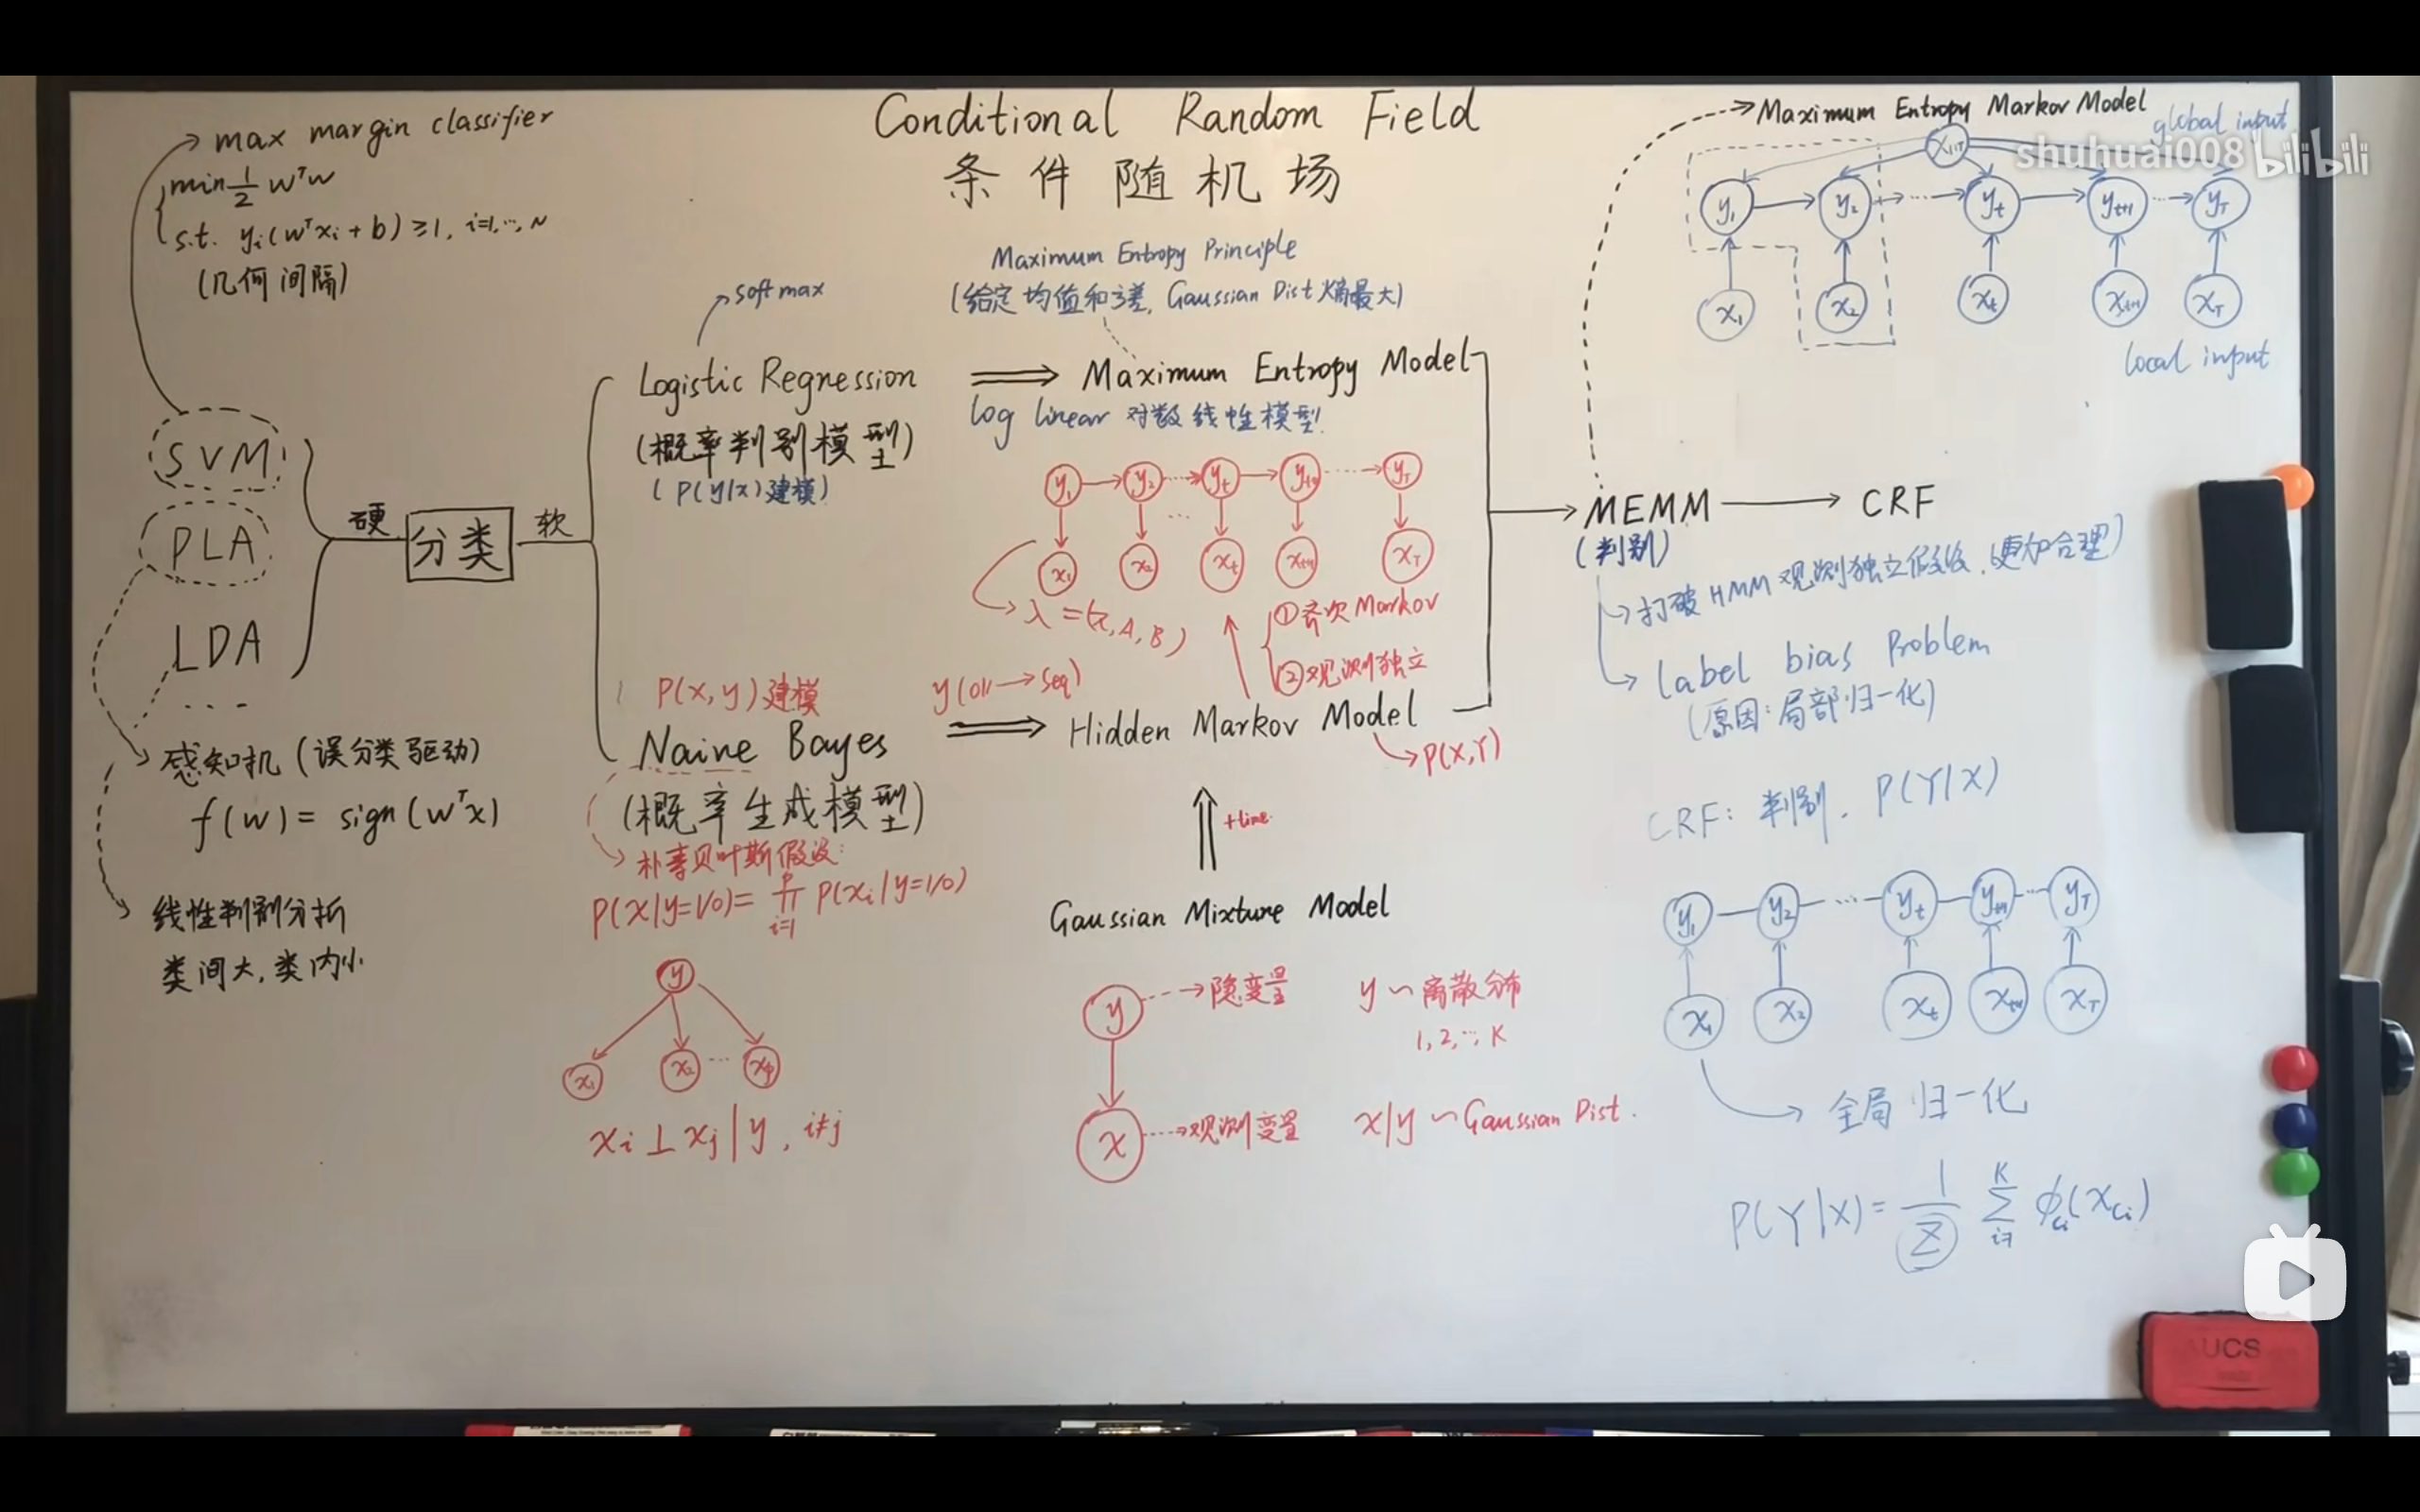 Conditional Random Field
条件随机场
max margin classifier
min 1/2 wᵀw
s.t. yᵢ(wᵀxᵢ + b) ≥ 1, i=1,…,N
(几何间隔)
SVM
PLA
LDA
...
硬
分类
软
感知机 (误分类驱动)
f(w) = sign(wᵀx)
线性判别分析
类间大, 类内小
softmax
Logistic Regression
(概率判别模型)
(P(y|x)建模)
P(x,y)建模
Naive Bayes
(概率生成模型)
朴素贝叶斯假设:
P(x|y=1/0) = ∏ᵢ₌₁ᵖ P(xᵢ|y=1/0)
y
x₁ x₂ ... xₚ
xᵢ ⊥ xⱼ | y, i≠j
Maximum Entropy Principle
(给定均值和方差, Gaussian Dist 熵最大)
Maximum Entropy Model
log linear 对数线性模型
y₁ y₂ ... yₜ yₜ₊₁ ... y_T
...
x₁ x₂ xₜ xₜ₊₁ x_T
λ = (π, A, B)
①齐次 Markov
②观测独立
y(0/1 → seq)
Hidden Markov Model
P(X,Y)
+time
Gaussian Mixture Model
y
隐变量
y ~ 离散分布
1, 2, …, K
x
观测变量
x|y ~ Gaussian Dist.
Maximum Entropy Markov Model
global input
shuhuai008 bilibili
x₁:T
y₁ y₂ ... yₜ yₜ₊₁ ... y_T
x₁ x₂ xₜ xₜ₊₁ x_T
local input
MEMM
CRF
(判别)
打破 HMM 观测独立假设. (更加合理)
Label bias Problem
(原因: 局部归一化)
CRF: 判别. P(Y|X)
y₁ y₂ ... yₜ yₜ₊₁ ... y_T
x₁ x₂ xₜ xₜ₊₁ x_T
全局归一化
P(Y|X) = 1/Z ∑ᵢ₌₁ᴷ ϕ_cᵢ(x_cᵢ)
AUCS